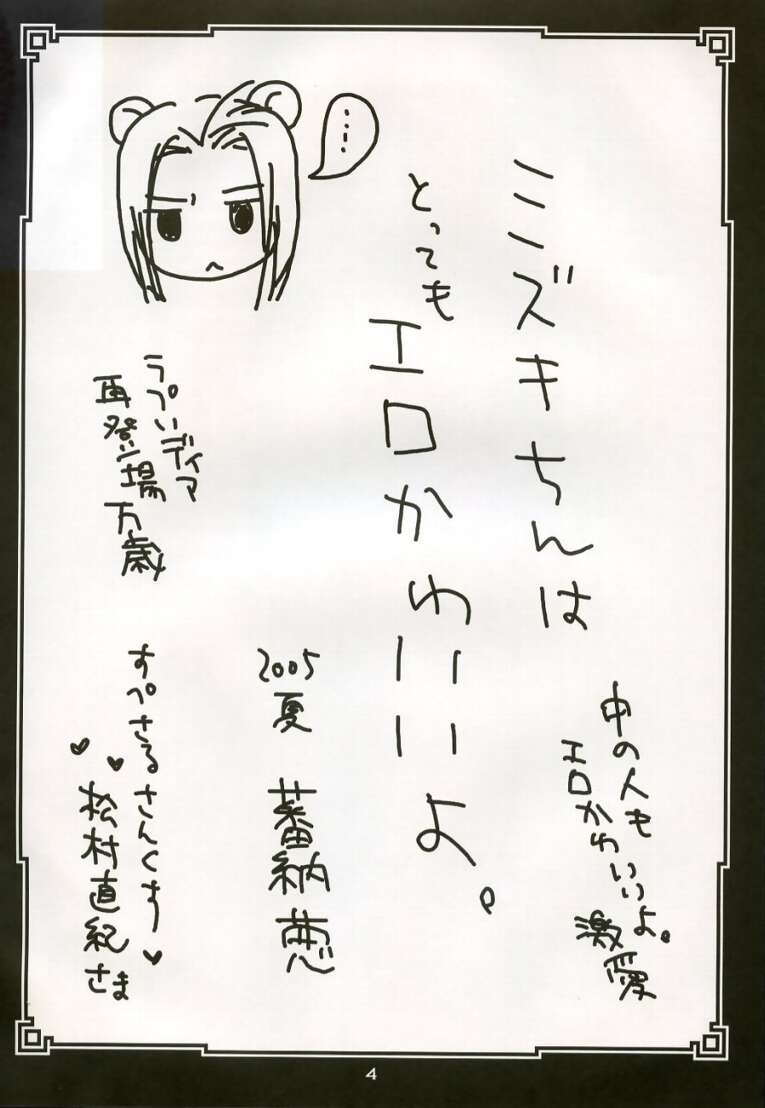 ミズキちんは
とっても
エロかわいいよ。
中の人も
エロかわいいよ。
激愛
…
2005
夏
蕃納 葱
らぷいディア
再登場万歳
すぺさるさんくす♥
♥♥松村直紀さま
4